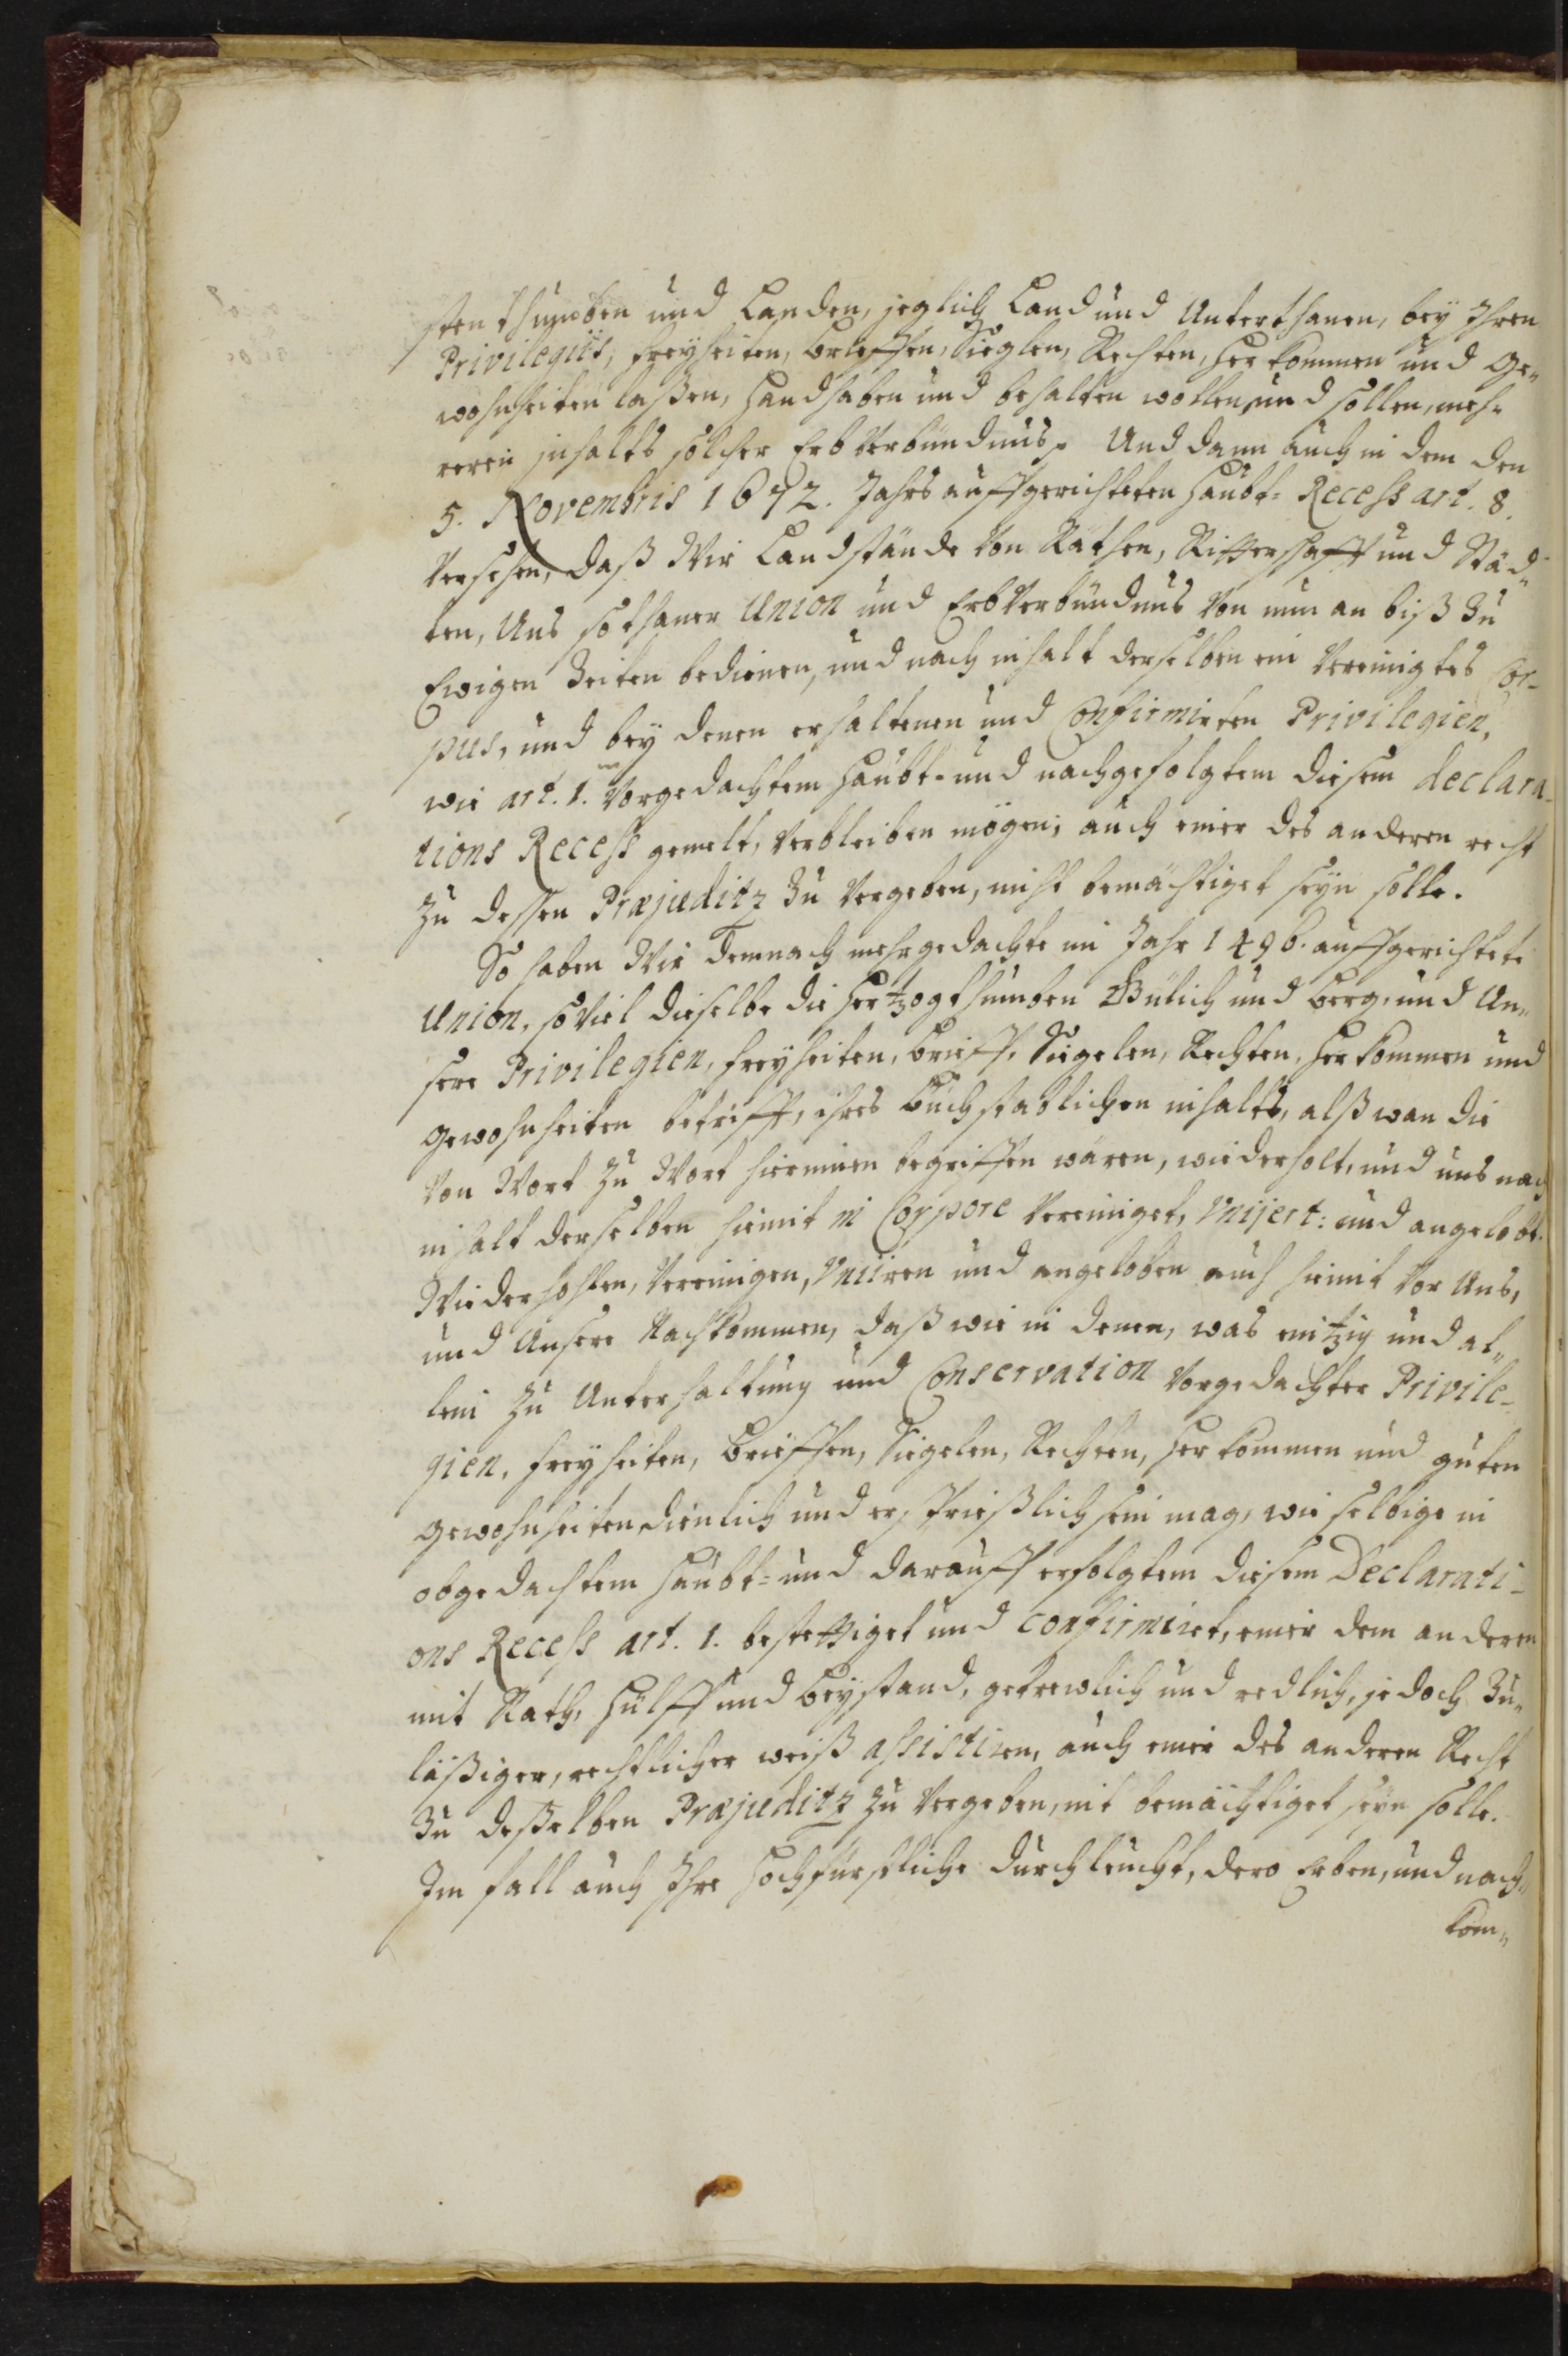 stenthumben und Landen, jeglich Land und Unterthanen, bey Ihren
Privilegiis, freyheiten, brieffen, Sieglen, Rechten, herkommen und Ge„
wohnheiten laßen, handhaben und behalten wollen und sollen, meh„
reren jnhalts solcher Erbverbündnus. Und dann auch in dem den
5. Novembris 1672. Jahrs auffgerichteten haubt- Recess art. 8.
versehen, daß Wir Landstände von Räthen, Ritterschafft und Städ„
ten, Uns sothaner Union und Erbverbündnus von nun an biß zu
Ewigen Zeiten bedienen, und nach inhalt derselben ein vereinigtes Cor-
pus, und bey denen erhaltenen und Confirmirten Privilegien,
wie art. 1. in vorgedachtem haubt- und nachgefolgtem diesem declara-
tions Recess gemelt, verbleiben mögen; auch einer des anderen recht
zu dessen Præjuditz zu vergeben, nicht bemächtiget seyn solle.
So haben Wir demnach mehrgedachte im Jahr 1496. auffgerichtete
Union, so viel dieselbe die Hertzogthumben Gülich und Berg, und Un„
sere Privilegien, freyheiten, brieff, Siegelen, Rechten, herkommen und
gewohnheiten betrifft, ihres buchstablichen inhalts, alß wan die
von Wort zu Wort hierinnen begriffen wären, wiederholt, und uns nach
inhalt derselben hiemit in Corpore vereiniget, Unijert: und angelobt.
Wiederhohlen, vereinigen, Uniiren und angeloben auch hiemit vor Uns,
und Unsere Nachkommen, daß wir in denen, was eintzig und al„
lein zu Unterhaltung und Conservation vorgedachter Privile-
gien, freyheiten, brieffen, Siegelen, Rechten, herkommen und guten
gewohnheiten dienlich und ersprießlich sein mag, wie selbige in
obgedachtem haubt- und darauff erfolgtem diesem Declarati-
ons Recess art. 1. bestettiget und confirmiret, einer dem anderen
mit Rath, hülff und beystand, getrewlich und redlich, jedoch zu„
läßiger, rechtlicher weiß assistiren, auch einer des anderen Recht
zu deßelben Præjuditz zu vergeben, nit bemächtiget seyn solle.
Im fall auch Ihre hochfürstliche Durchleucht, dero Erben, und nach„
kom„